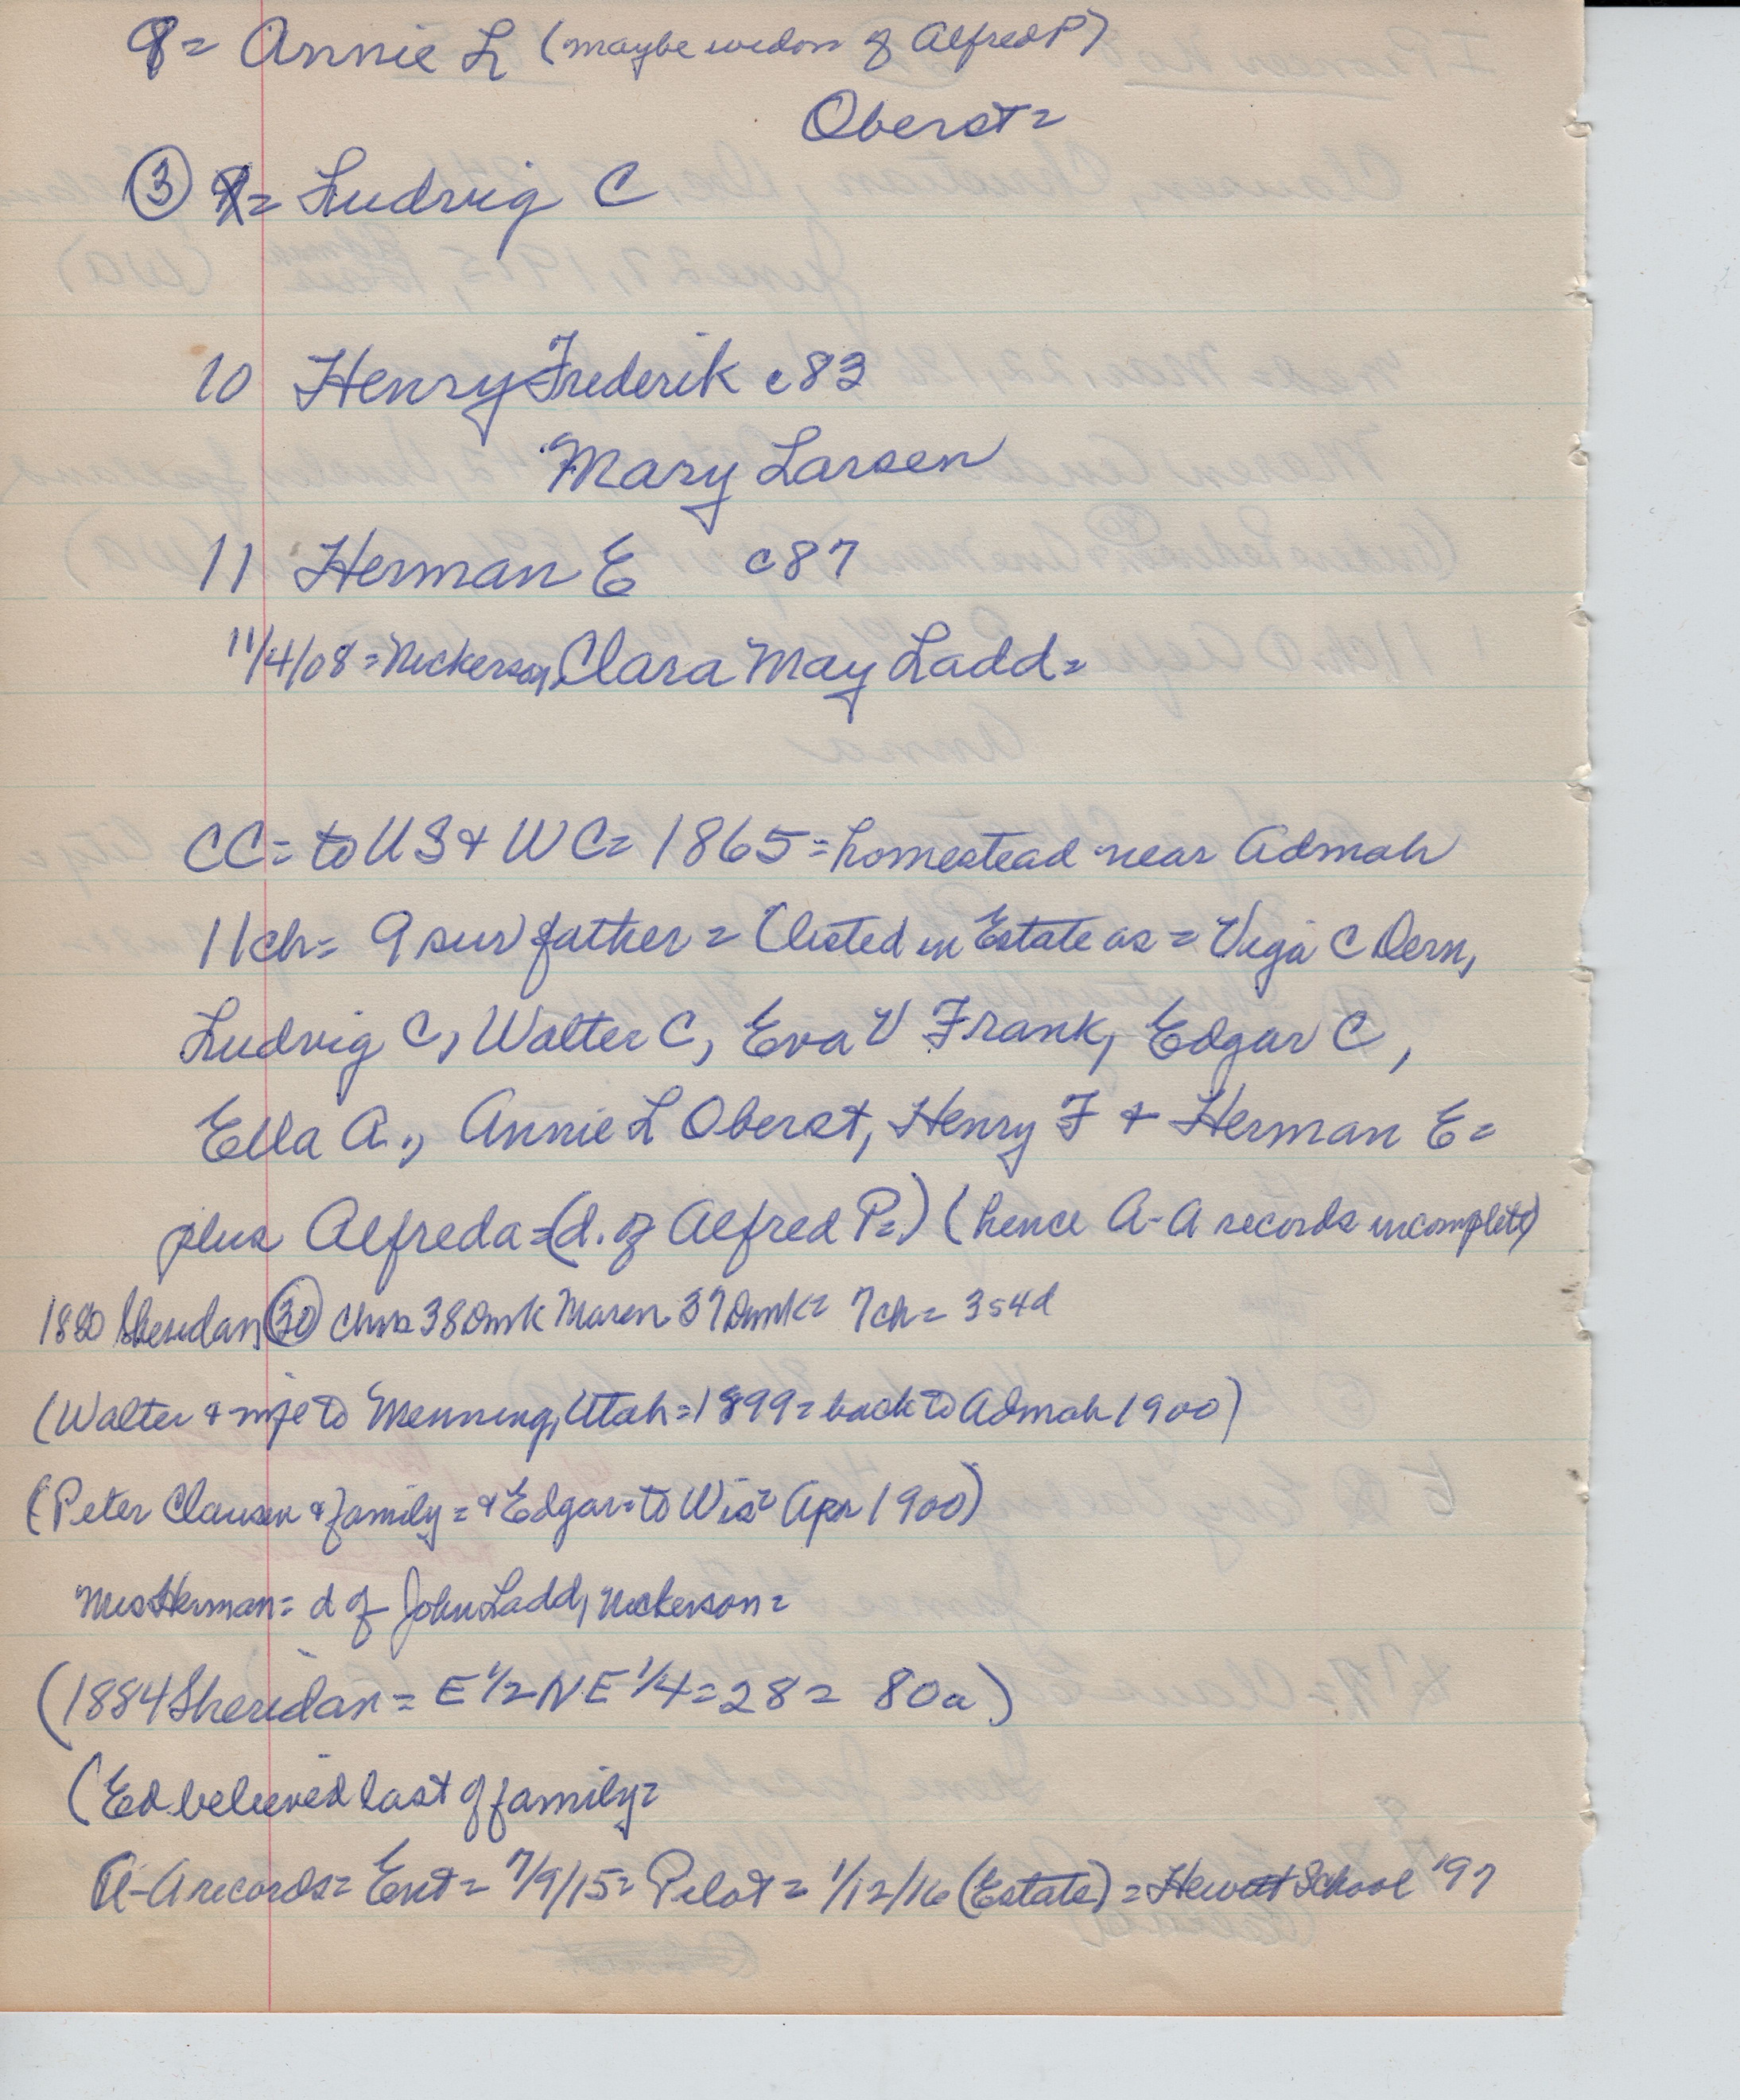 9= Annie L (maybe widow of Alfred P)
Oberst=
③ = Ludvig C
10 Henry Frederik c83
Mary Larsen
11 Herman E c87
11/4/08 = Nickerson, Clara May Ladd=
CC= to US & WC= 1865 = homestead near Admah
11ch= 9 surv father = (listed in Estate as = Viga C Dern,
Ludvig C, Walter C, Eva V Frank, Edgar C,
Ella A., Annie L Oberst, Henry F & Herman E=
plus Alfreda=(d. of Alfred P=) (hence A-A records incomplete)
1880 Sheridan, ㉚ Chris 38 Dmk Maren 37 Dmk= 7ch= 3s4d
(Walter & wife to Menning, Utah=1899= back to Admah 1900)
(Peter Clausen & family= & Edgar= to Wis= Apr 1900)
Mrs Herman= d of John Ladd, Nickerson=
(1884 Sheridan= E 1/2 NE 1/4=28= 80a)
(Ed believed last of family=
A-A records= Ent= 7/9/15= Pilot= 1/12/16 (Estate) = Hewett School '97